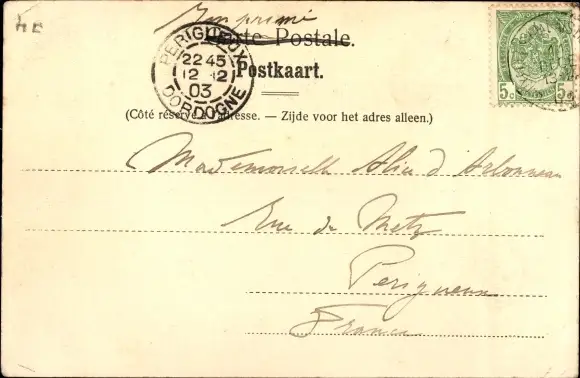 HE
Imprimé
Carte Postale.
Postkaart.
PERIGUEUX
22 45
12 12
03
DORDOGNE
5c 5c
(Côté réservé à l'adresse. — Zijde voor het adres alleen.)
Mademoiselle Alice d'Arbonneau
Rue de Metz
Perigueux
France